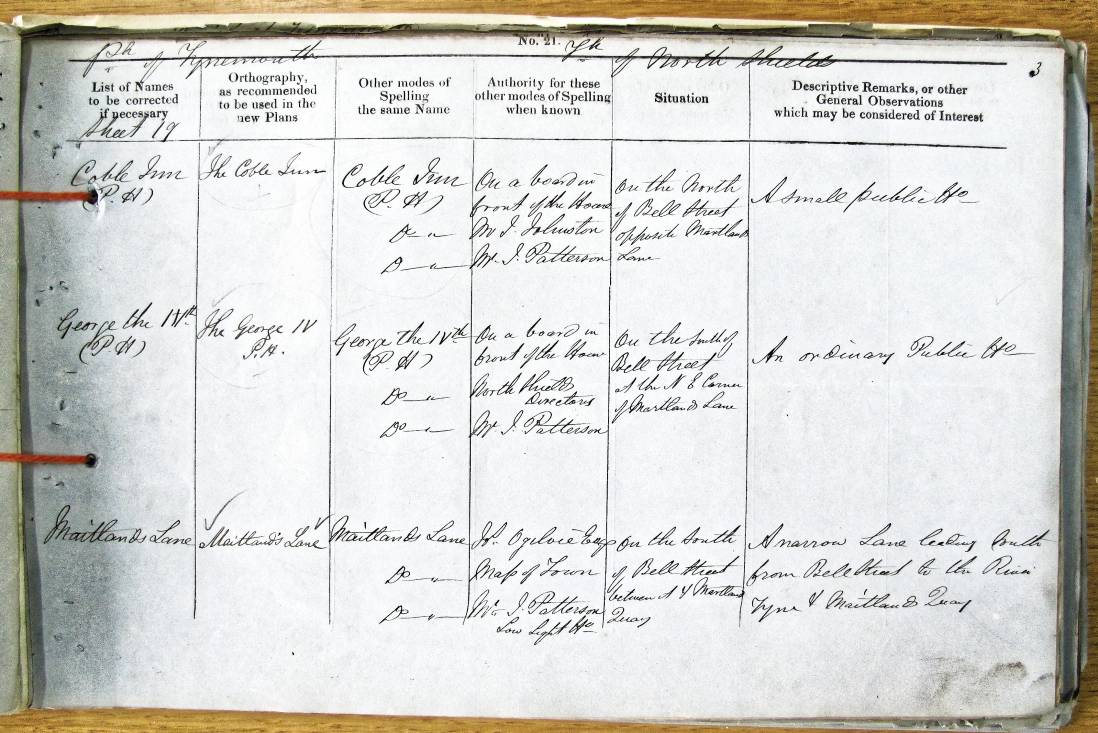 No. 21.
Psh of Tynemouth Tp of North Shields
3
List of Names
to be corrected
if necessary
Orthography,
as recommended
to be used in the
new Plans
Other modes of
Spelling
the same Name
Authority for these
other modes of Spelling
when known
Situation
Descriptive Remarks, or other
General Observations
which may be considered of Interest
Sheet 19
Coble Inn
(P.H)
The Coble Inn
Coble Inn
(P.H)
Do "
Do "
On a board in
front of the House
Mr J. Johnston
Mr. J. Patterson
On the North
of Bell Street
opposite Maitlands
Lane
A small public Ho
George the IVth
(P.H)
The George IV
P.H.
George the IVth
(P.H)
Do "
Do "
On a board in
front of the House
North Shields
Directories
Mr J. Patterson
On the South of
Bell Street
at the N E Corner
of Maitlands Lane
An ordinary Public Ho
Maitlands Lane
Maitland's Lane
Maitlands Lane
Do "
Do "
Ogilvie Esq
Map of Town
Mr J. Patterson
Low Light Ho
On the South
of Bell Street
between it & Maitlands
Quay
A narrow Lane leading South
from Bell Street to the River
Tyne & Maitlands Quay